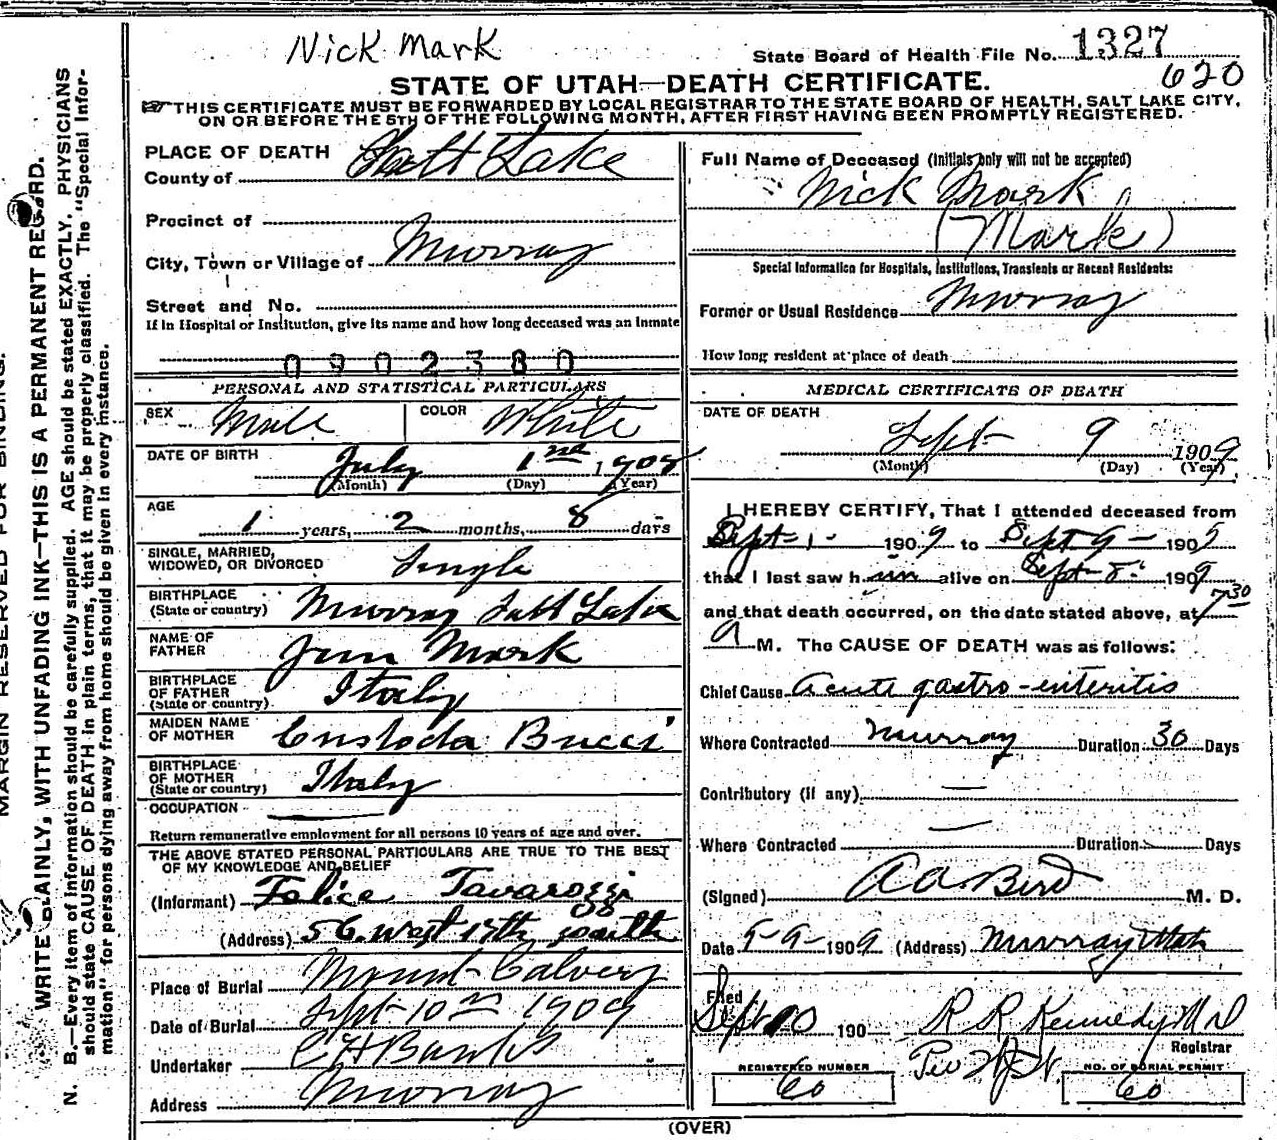 Nick Mark
State Board of Health File No. 1327
620
STATE OF UTAH—DEATH CERTIFICATE.
THIS CERTIFICATE MUST BE FORWARDED BY LOCAL REGISTRAR TO THE STATE BOARD OF HEALTH, SALT LAKE CITY,
ON OR BEFORE THE 5TH OF THE FOLLOWING MONTH, AFTER FIRST HAVING BEEN PROMPTLY REGISTERED.
MARGIN RESERVED FOR BINDING.
WRITE PLAINLY, WITH UNFADING INK—THIS IS A PERMANENT RECORD.
N. B.—Every item of information should be carefully supplied. AGE should be stated EXACTLY. PHYSICIANS
should state CAUSE OF DEATH in plain terms, that it may be properly classified. The "Special Infor-
mation" for persons dying away from home should be given in every instance.
PLACE OF DEATH
County of Salt Lake
Precinct of
City, Town or Village of Murray
Street and No.
If in Hospital or Institution, give its name and how long deceased was an Inmate
0902380
PERSONAL AND STATISTICAL PARTICULARS
SEX Male COLOR White
DATE OF BIRTH July 1 1908
(Month) (Day) (Year)
AGE 1 years, 2 months, 8 days
SINGLE, MARRIED,
WIDOWED, OR DIVORCED Single
BIRTHPLACE
(State or country) Murray Salt Lake
NAME OF
FATHER Jim Mark
BIRTHPLACE
OF FATHER
(State or country) Italy
MAIDEN NAME
OF MOTHER Custoda Bucci
BIRTHPLACE
OF MOTHER
(State or country) Italy
OCCUPATION
Return remunerative employment for all persons 10 years of age and over.
THE ABOVE STATED PERSONAL PARTICULARS ARE TRUE TO THE BEST
OF MY KNOWLEDGE AND BELIEF
(Informant) Felice Tavarozzi
(Address) 56 west 17th South
Place of Burial Mount Calvery
Date of Burial Sept 10 1909
Undertaker
Address Murray
Full Name of Deceased (Initials only will not be accepted)
Nick Mark
(Mark)
Special Information for Hospitals, Institutions, Transients or Recent Residents:
Former or Usual Residence Murray
How long resident at place of death
MEDICAL CERTIFICATE OF DEATH
DATE OF DEATH
Sept 9 1909
(Month) (Day) (Year)
I HEREBY CERTIFY, That I attended deceased from
Sept-1- 1909 to Sept 9- 190
that I last saw him alive on Sept-8- 1909
and that death occurred, on the date stated above, at 7 30
a M. The CAUSE OF DEATH was as follows:
Chief Cause acute gastro-enteritis
Where Contracted Murray Duration 30 Days
Contributory (if any) —
Where Contracted — Duration Days
(Signed) A A Bird M. D.
Date 9-9-1909 (Address) Murray Utah
Filed
Sept 10 190 R R Kennedy M D
Registrar
REGISTERED NUMBER
60
NO. OF BURIAL PERMIT
60
(OVER)